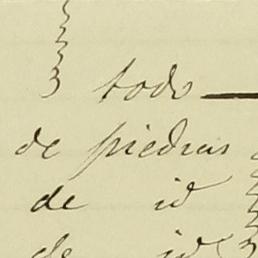 todo
de piedras
de id
de id